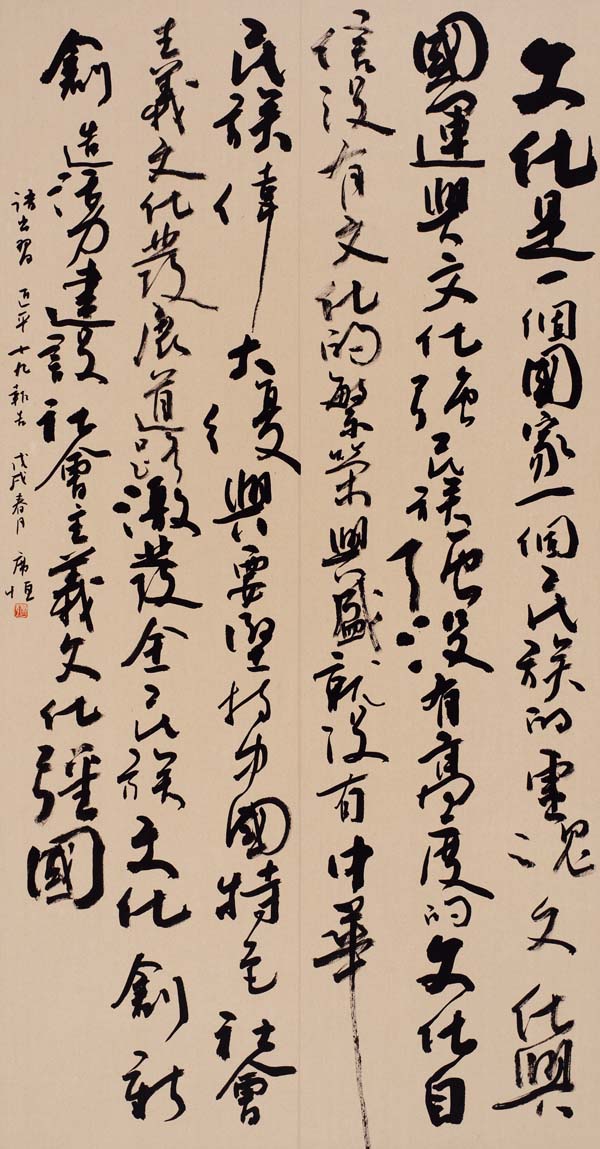 文化是一個國家一個民族的靈魂文化興
國運興文化強民族強沒有高度的文化自
信沒有文化的繁榮興盛就沒有中華
民族偉大復興要堅持中國特色社會
主義文化發展道路激發全民族文化創新
創造活力建設社會主義文化彊國
語出習近平十九報告 戊戌春月 席恒